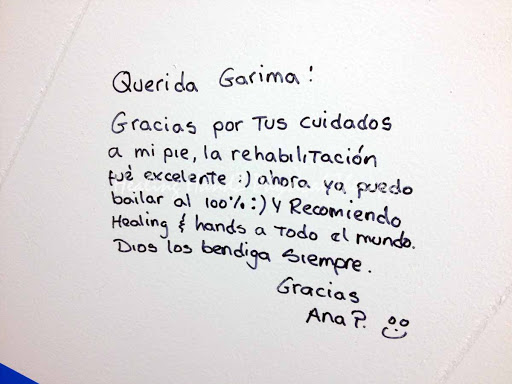 Querida Garima!
Gracias por Tus cuidados
a mi pie, la rehabilitación
fué excelente :) ahora ya puedo
bailar al 100% :) Y Recomiendo
Healing & hands a Todo el mundo.
Dios los bendiga Siempre.
Gracias
Ana P.